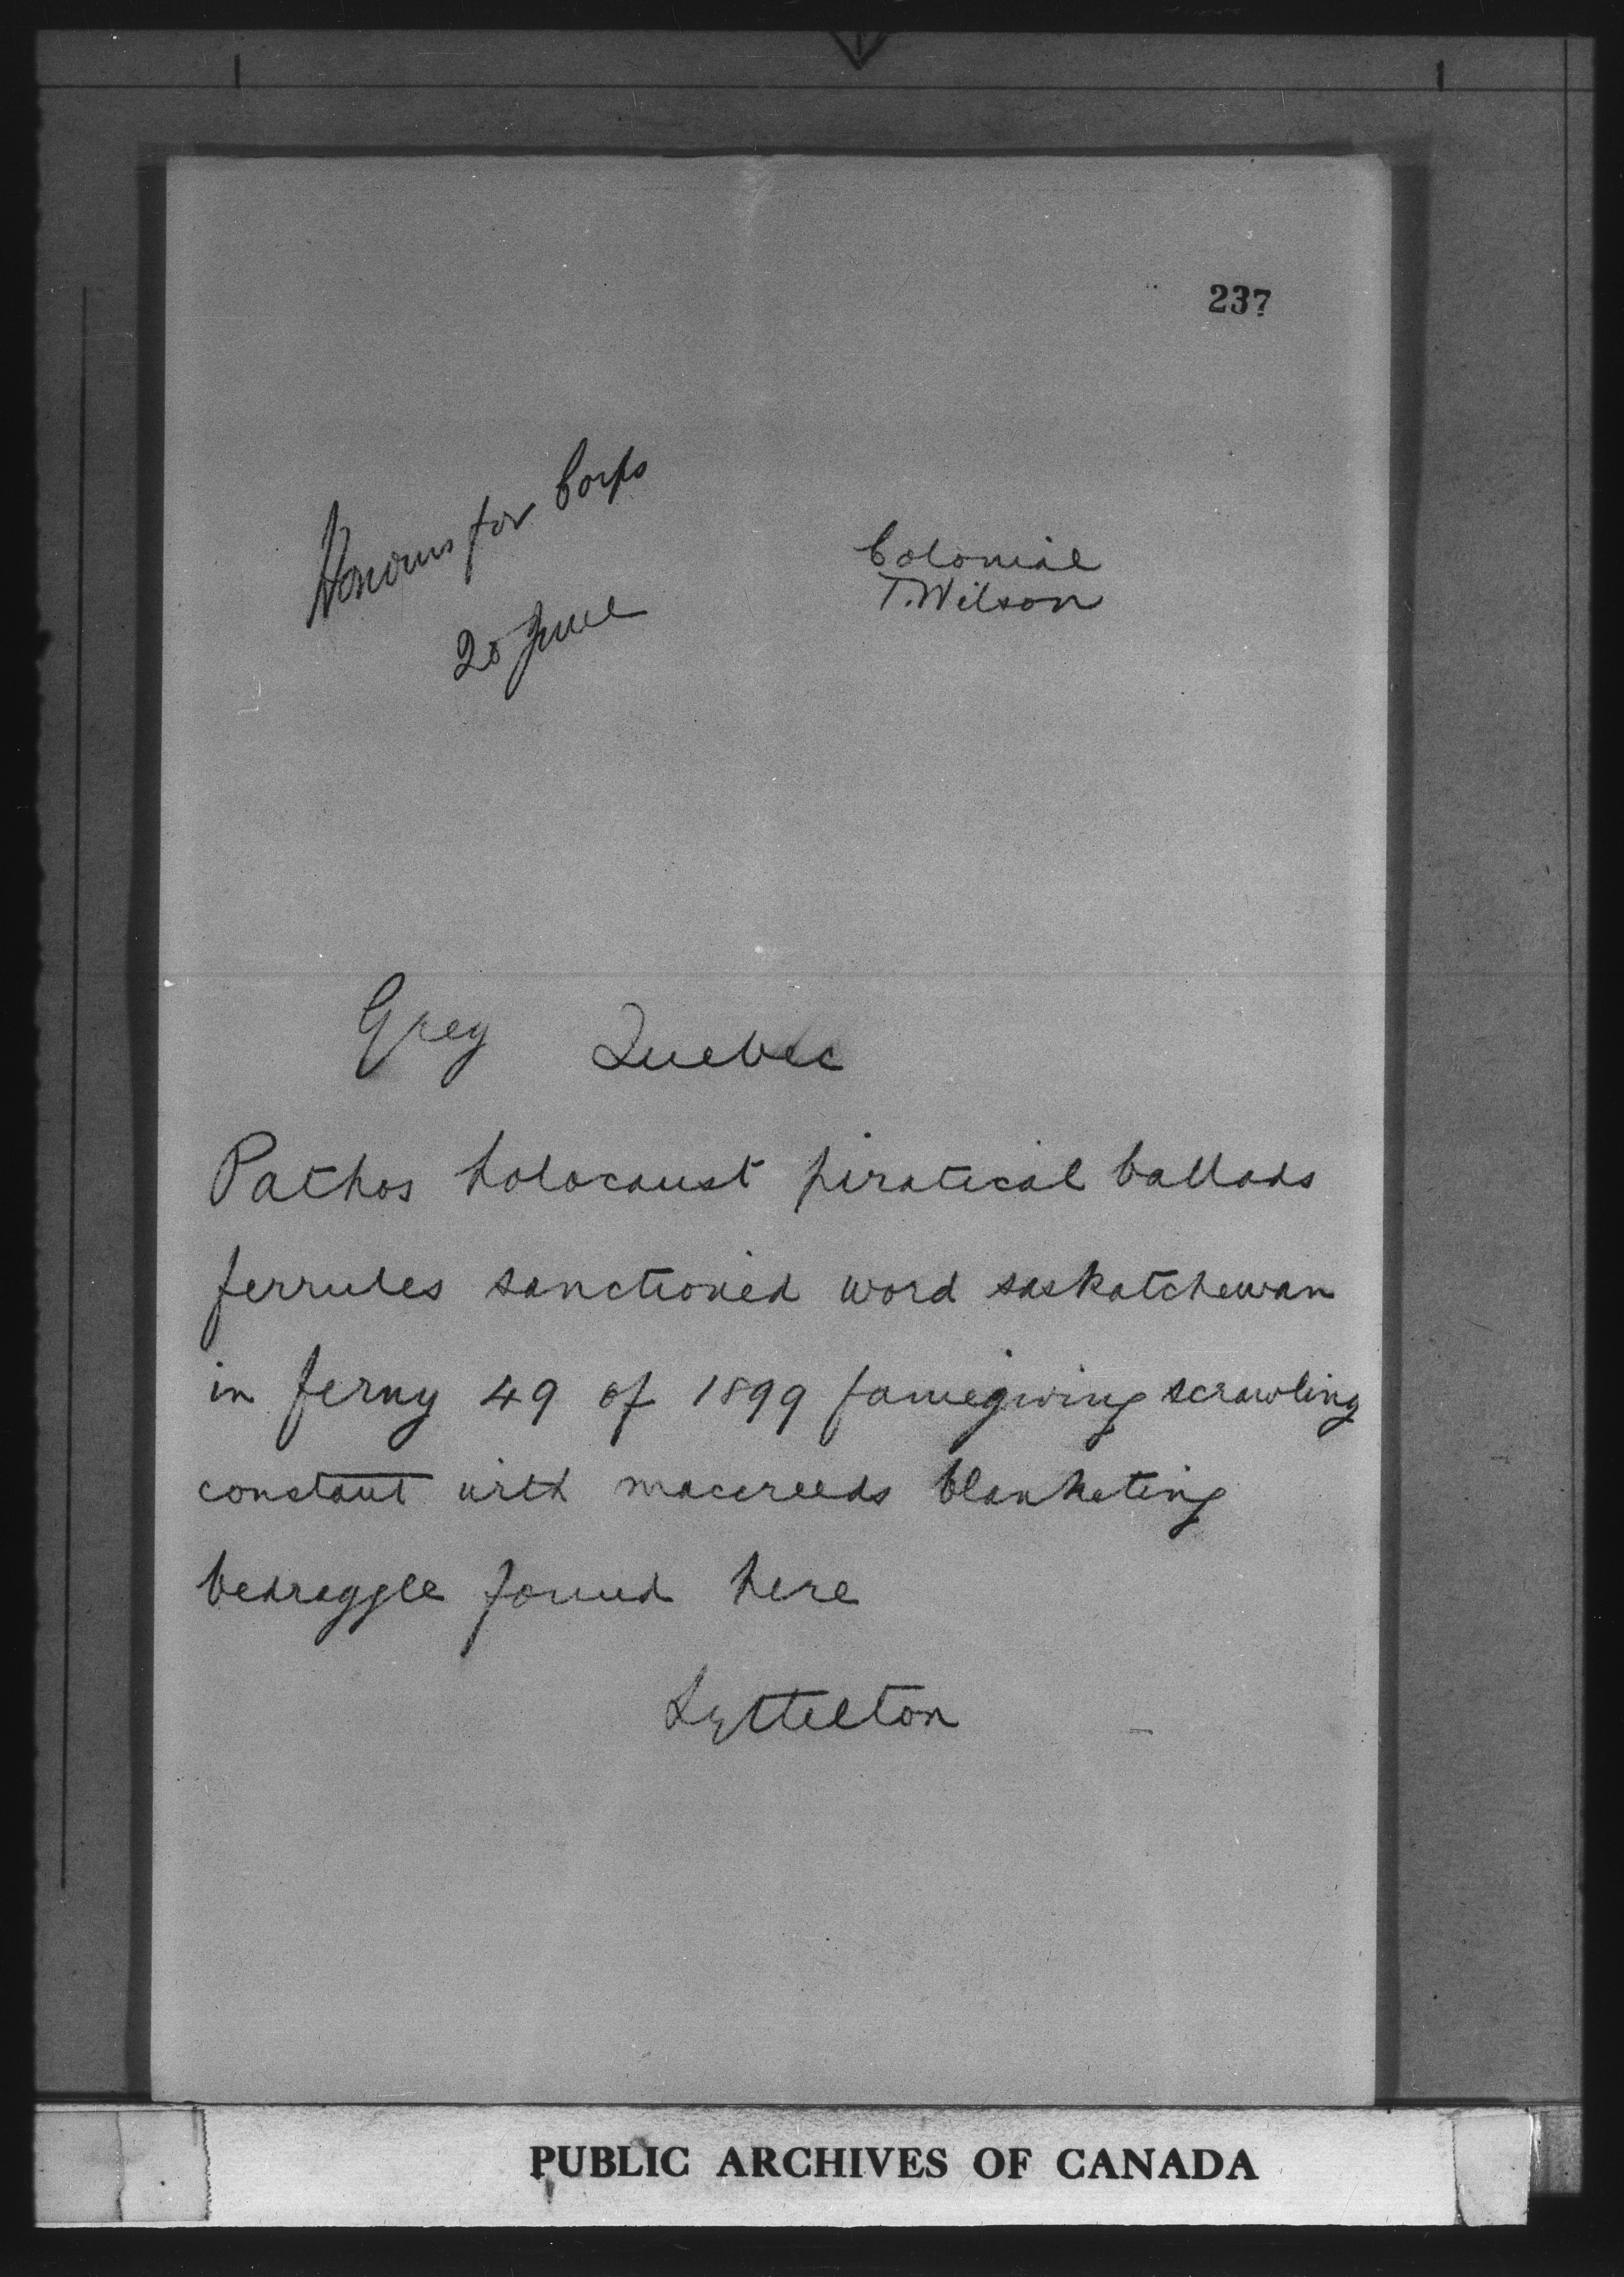 237
Honours for Corps
20 June
Colonial
T. Wilson
Grey Quebec
Pathos holocaust piratical ballads
ferrules sanctioned word saskatchewan
in ferny 49 of 1899 famegiving scrawling
constant with macereeds blanketing
bedraggle found here
Lyttelton
PUBLIC ARCHIVES OF CANADA